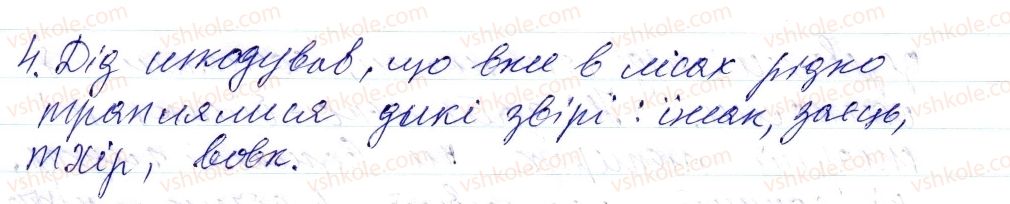 4. Дід шкодував, що вже в лісах рідко
траплялися дикі звірі: їжак, заєць,
тхір, вовк.